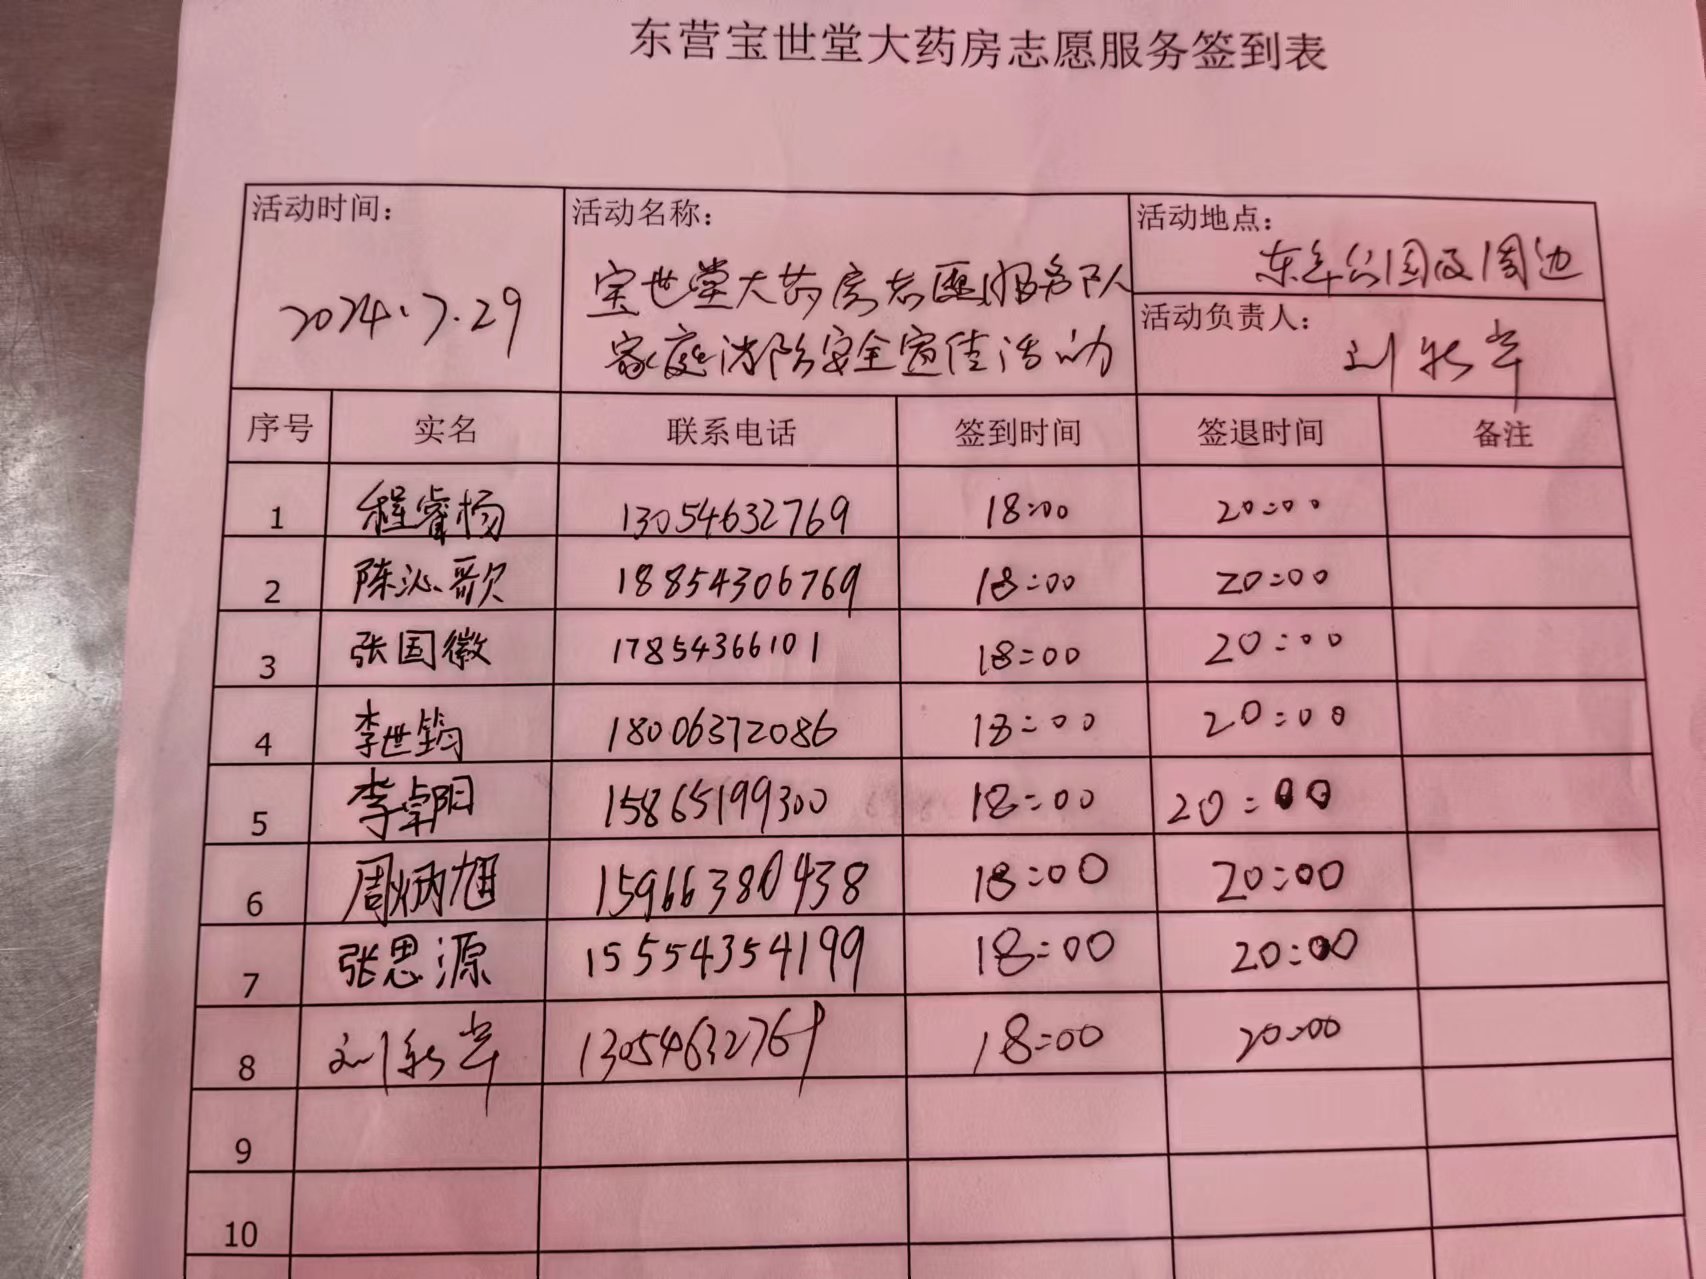 东营宝世堂大药房志愿服务签到表
活动时间： 活动名称： 活动地点：
东 公园及周边
2024.7.29 宝世堂大药房志愿服务队
家庭消防安全宣传活动
活动负责人：
刘
序号 实名 联系电话 签到时间 签退时间 备注
1 程睿杨 13054632769 18:00 20:00
2 陈沁歌 18854306769 18:00 20:00
3 张国徽 17854366101 18:00 20:00
4 李世钧 18006372086 18:00 20:00
5 李卓阳 15865199300 18:00 20:00
6 周炳旭 15966380438 18:00 20:00
7 张思源 15554354199 18:00 20:00
8 刘 13054632769 18:00 20:00
9
10